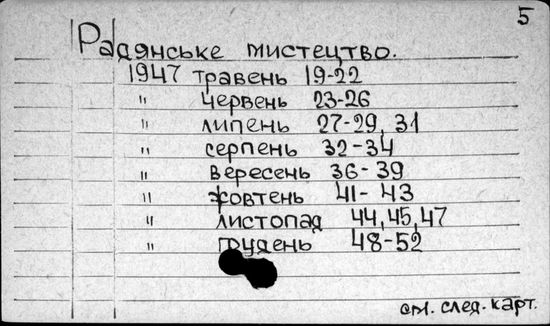 5
Радянське мистецтво.
1947 травень 19-22
" червень 23-26
" липень 27-29, 31
" серпень 32-34
" вересень 36-39
" жовтень 41-43
" листопад 44,45,47
" грудень 48-52
см. след. карт.